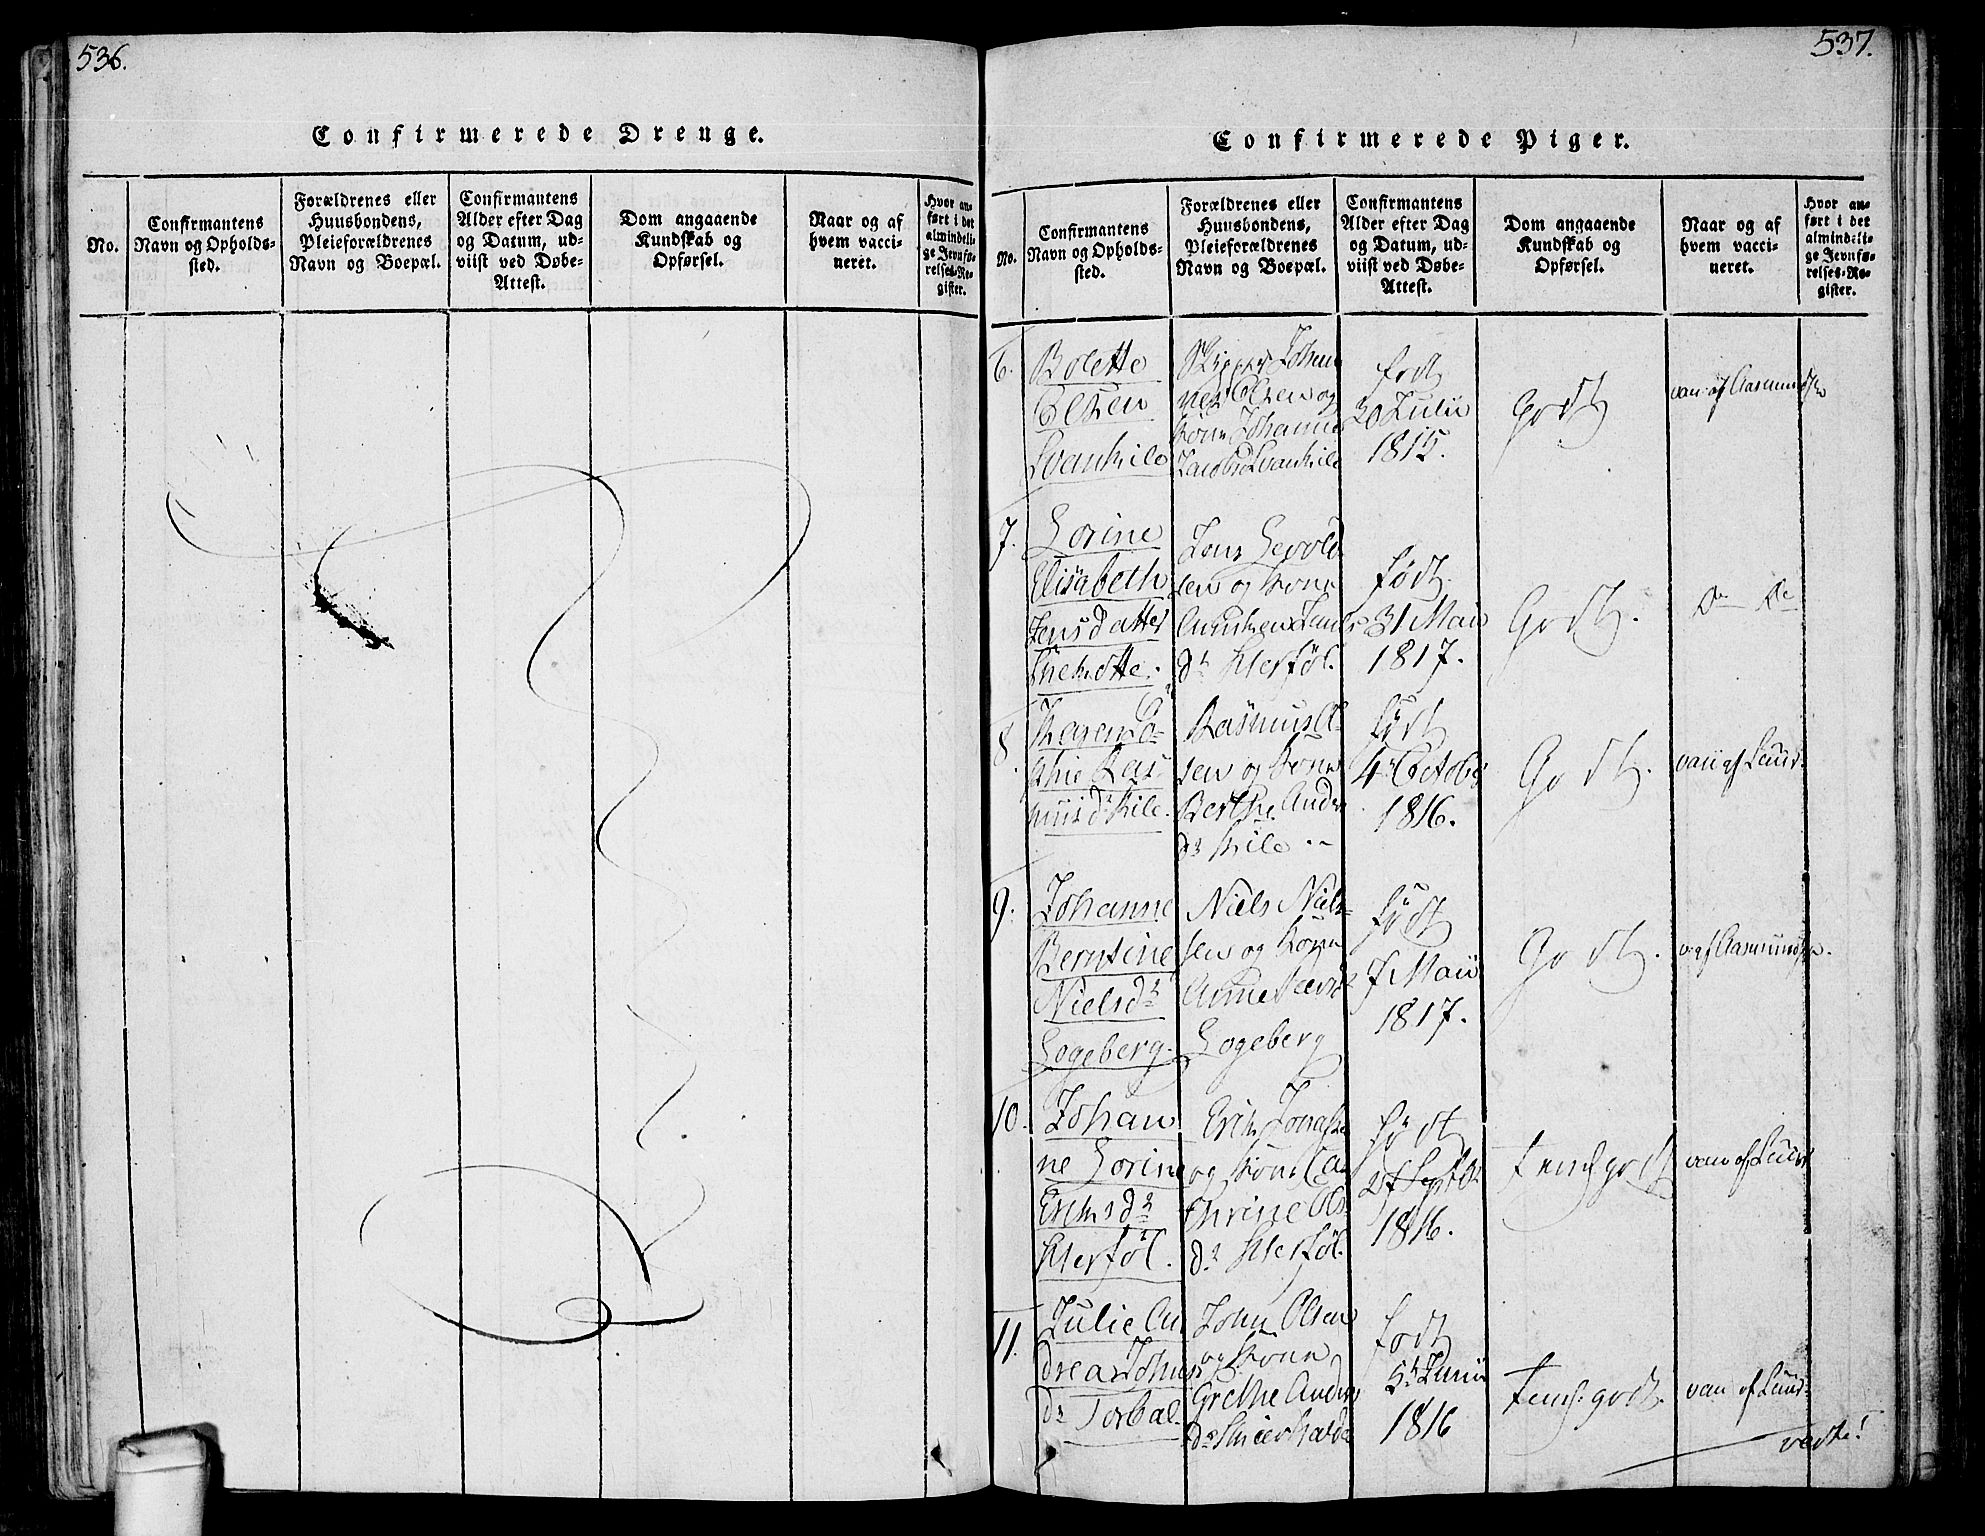 536.
Confirmerede Drenge.
No.
Confirmantens
Navn og Opholds-
sted.
Forældrenes eller
Huusbondens,
Pleieforældrenes
Navn og Boepæl.
Confirmantens
Alder efter Dag
og Datum, ud-
viist ved Døbe-
Attest.
Dom angaaende
Kundskab og
Opførsel.
Naar og af
hvem vacci-
neret.
Hvor an-
ført i det
almindeli-
ge Jevnfø-
relses-Re-
gister.
537.
Confirmerede Piger.
No.
Confirmantens
Navn og Opholds-
sted.
Forældrenes eller
Huusbondens,
Pleieforældrenes
Navn og Boepæl.
Confirmantens
Alder efter Dag
og Datum, ud-
viist ved Døbe-
Attest.
Dom angaaende
Kundskab og
Opførsel.
Naar og af
hvem vacci-
neret.
Hvor an-
ført i det
almindeli-
ge Jevnfø-
relses-Re-
gister.
6.
Bolette
Olsen
Svankile
Skipper Johan
nes Olsen og
Kone Johanne
født
30 Julii
1815.
Godt
van af Aasmundsen
7.
Sorine
Elisabeth
Jensdatter
Jens
sen og Kone
født
31 Maii
1817.
Godt.
Do De
8.
Rasmus Ol
sen og Kone
Berthe Anders
dr Kile
født
4 October
1816.
Godt.
van af Lund.
9.
Johanne
Berntine
Nielsdr
Logeberg.
Niels Niel-
sen og Kone
Anne
Logeberg
født
7 Maii
1817.
Godt.
v. af Aasmundsen.
10.
Johan
ne Sorine
Eriksdr
Kierföl.
Erik
og Kone Ca
thrine Ols
dr Kierföl.
født
1816.
temgodt
van af Lund
11.
Julie An
drea Johns
dr
John Olsen
og Kone
Grethe Anders
født
5 Junii
1816
tem. godt.
van af Lund.
verte!